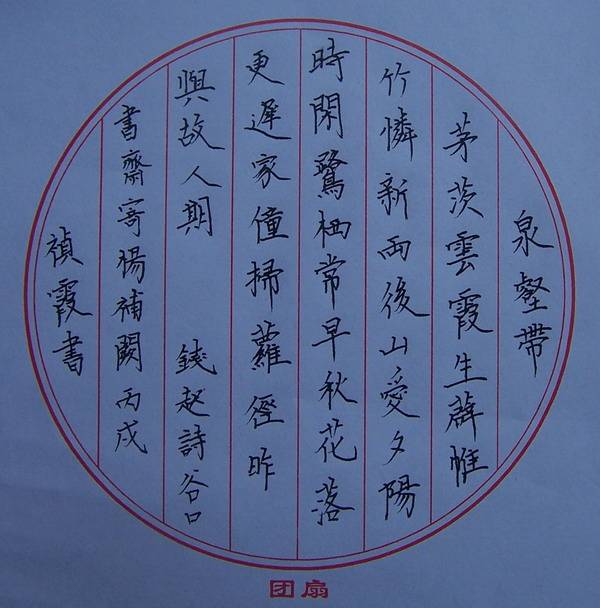 泉壑帶
茅茨雲霞生薜帷
竹憐新雨後山愛夕陽
時閑鷺栖常早秋花落
更遲家僮掃蘿徑昨
與故人期 錢起詩谷口
書齋寄楊補闕丙戌
禎霞書
团扇